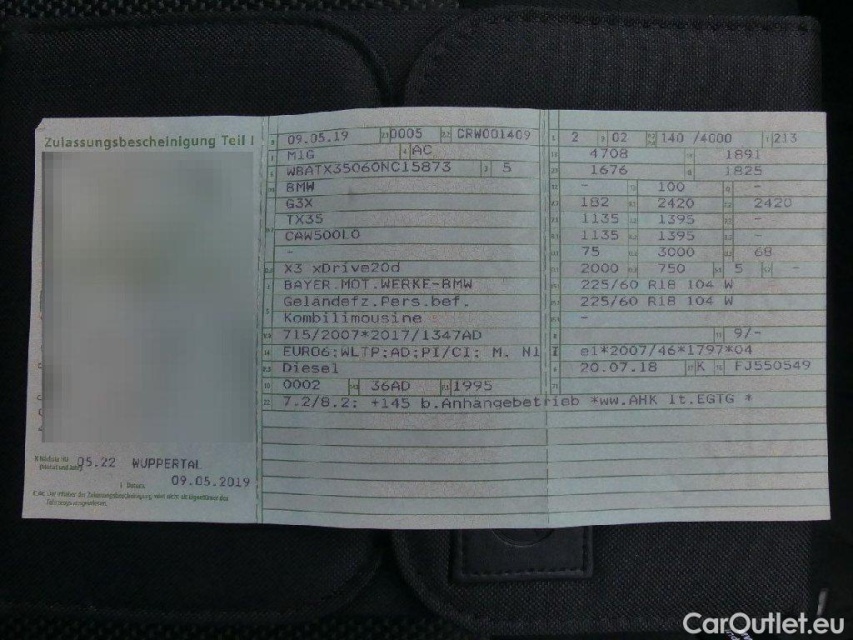 Zulassungsbescheinigung Teil I
09.05.19 0005 CRW001409
M1G AC
WBATX35060NC15873 5
BMW
G3X
TX35
CAW500L0
-
X3 xDrive20d
BAYER.MOT.WERKE-BMW
Geländefz.Pers.bef.
Kombilimousine
715/2007*2017/1347AD
EURO6;WLTP;AD;PI/CI; M, N1 I
Diesel
0002 36AD 1995
7.2/8.2: +145 b.Anhängebetrieb *ww.AHK lt.EGTG *
2 02 140 /4000 213
4708 1891
1676 1825
- 100 -
182 2420 2420
1135 1395
1135 1395
75 3000 68
2000 750 5 -
225/60 R18 104 W
225/60 R18 104 W
-
9/-
e1*2007/46*1797*04
20.07.18 K FJ550549
05.22 WUPPERTAL
09.05.2019
CarOutlet.eu